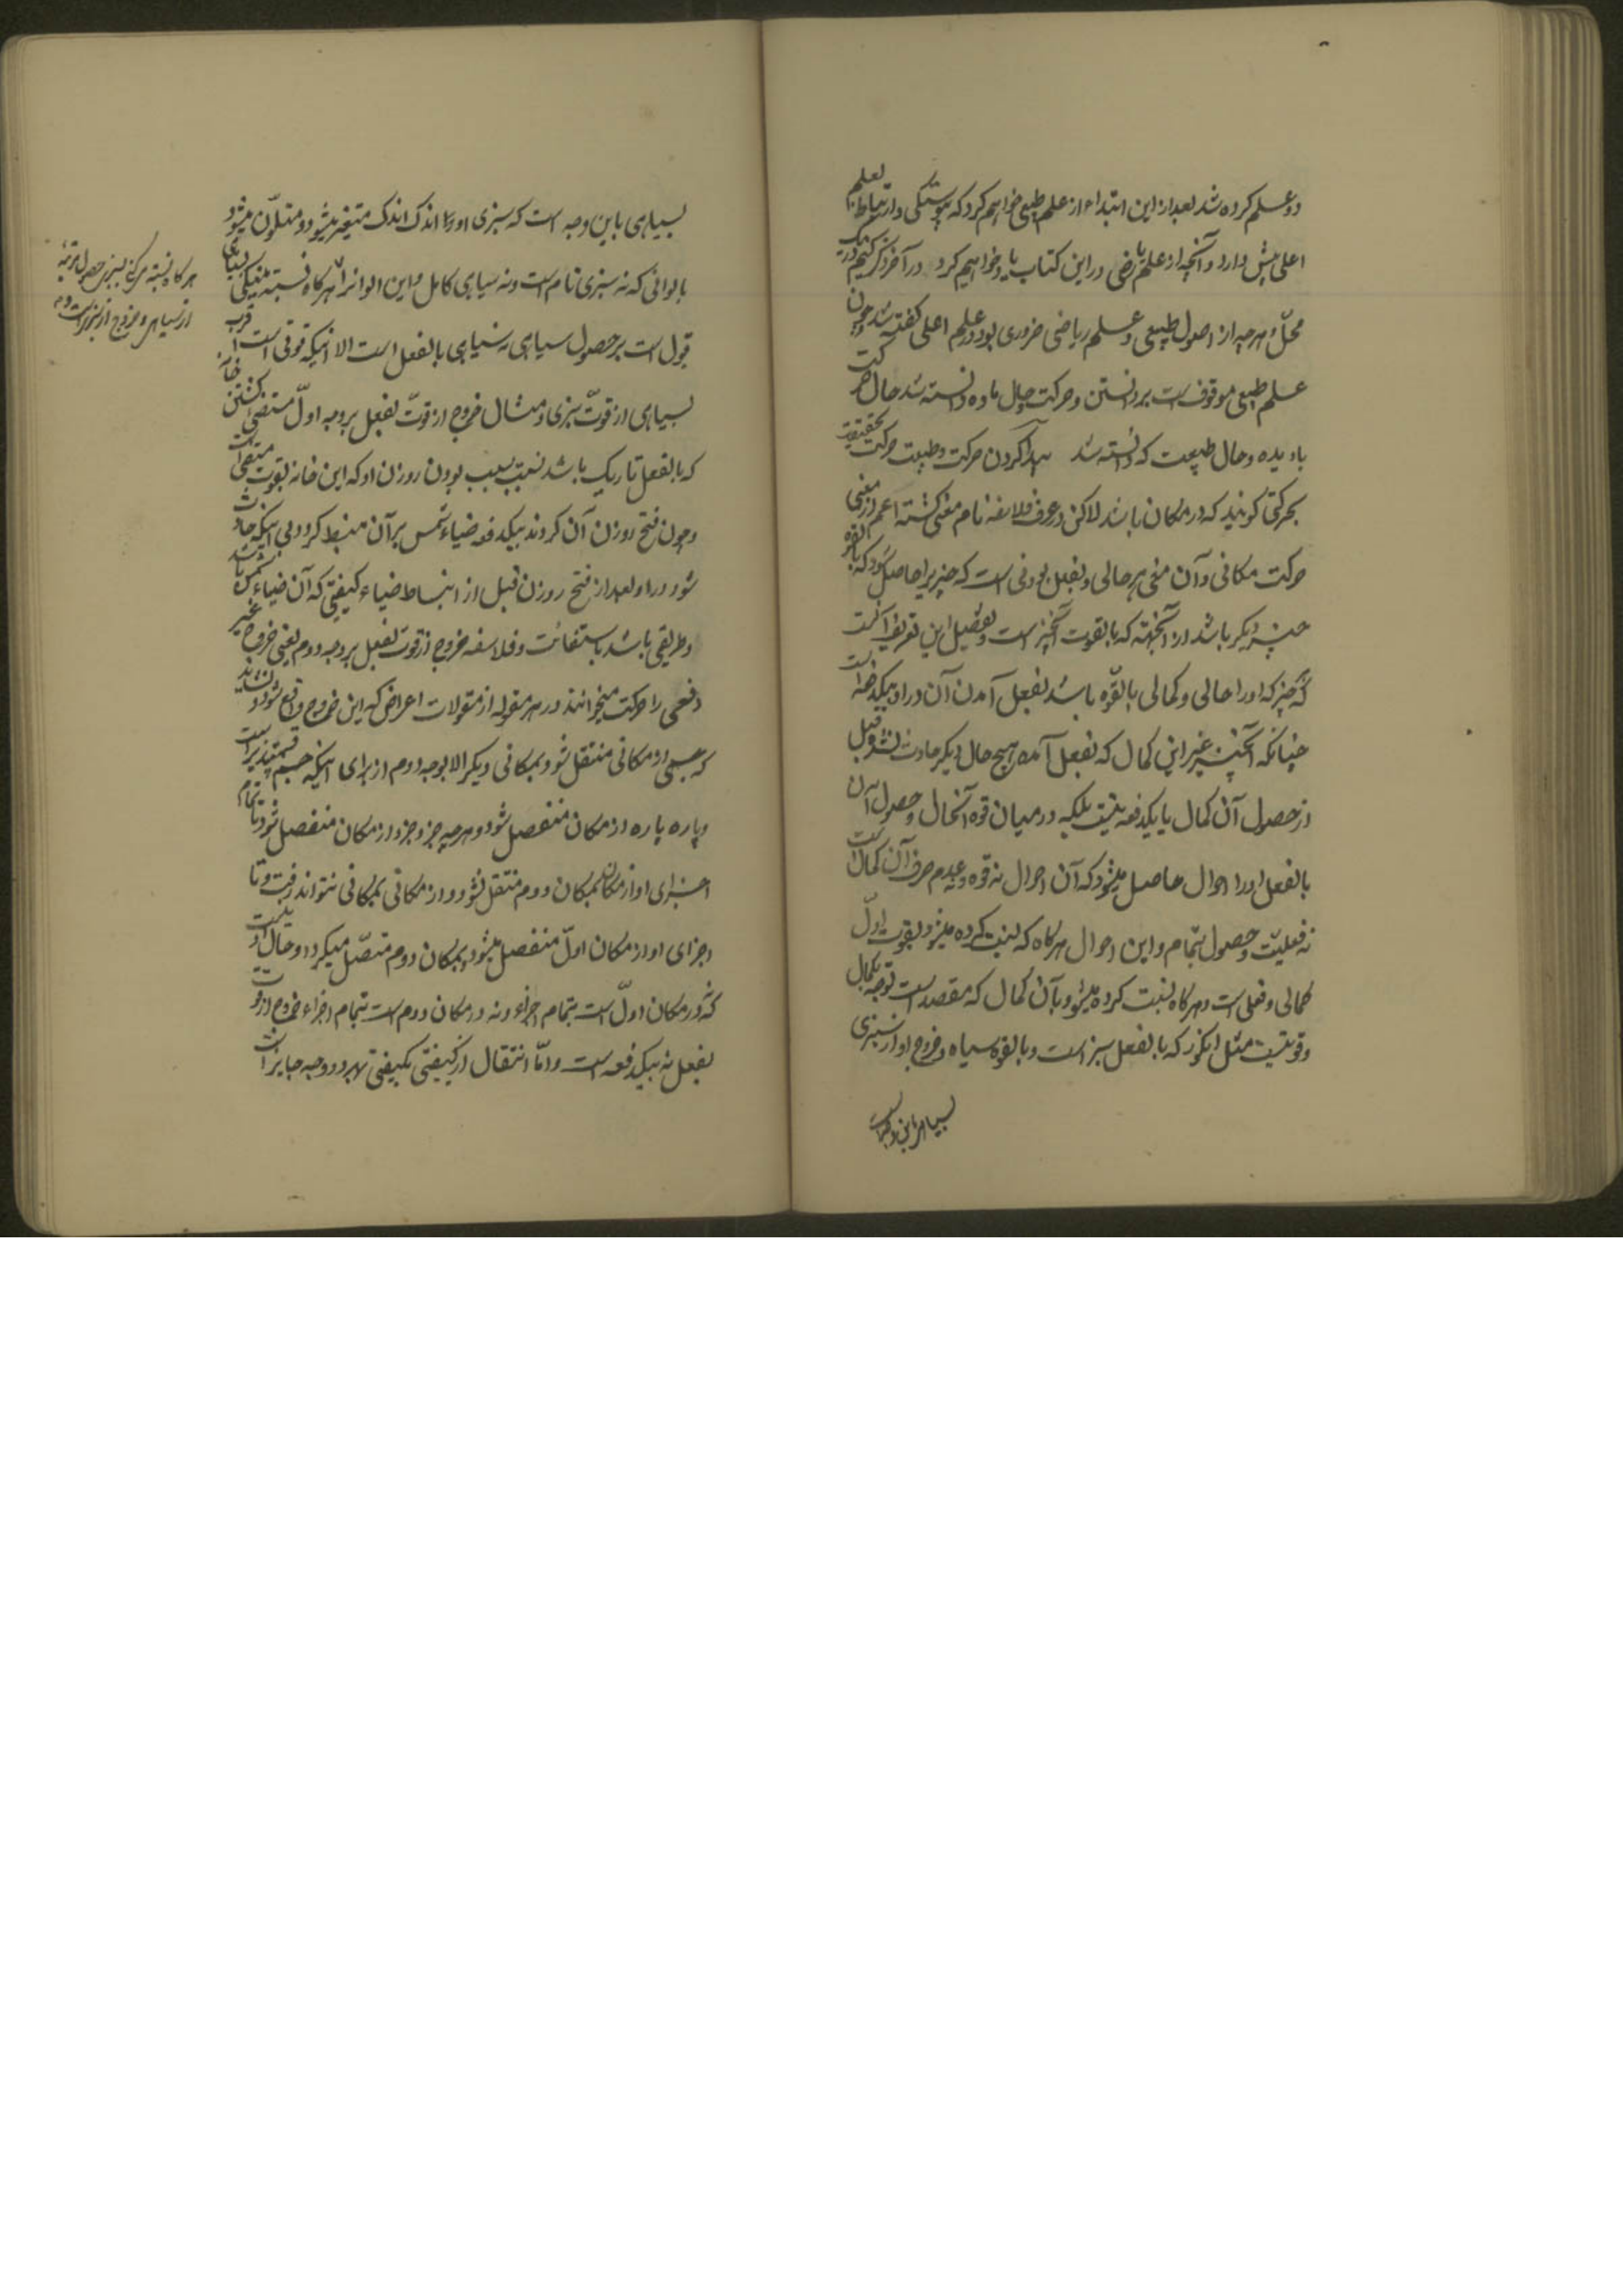 دو علم کرده شد بعد از این ابتداء از علم طبیعی خواهیم کرد که پیوستگی و ارتباط بعلم
اعلی پیش دارد و آنچه از علم ریاضی در این کتاب یاد خواهیم کرد در آخر ذکر کنیم
محل و هرچه از اصول طبیعی و علم ریاضی ضروری بود در علم اعلی گفته شد و چون
علم طبیعی موقوفست بر دانستن حرکت و حال ماده دانسته شد حال حرکت
باد دیده و حال طبیعت که دانسته شد پیدا کردن حرکت و طبیعت حرکت بحقیقت
بحرکتی گویند که در مکان باشد لاکن در عرف فلاسفه نام معنی گشته اعم از معنی
حرکت مکانی و آن معنی هر حالی و بفعل بودنی است که چیزیرا حاصل شود که بالقوه
چیز دیگر باشد از آنجهة که بالقوت آنچیز است و تفصیل این تعریف آنست
که چیز که او را حالی و کمالی بالقوّه باشد بفعل آمدن آن در او بیکدفعه است
چنانکه آنچیز غیر این کمال که بفعل آمده هیچ حال دیگر حادث نشود قبل
از حصول آن کمال یا بیکدفعه نیست بلکه در میان قوه آنحال و حصول آن
بالفعل او را احوال حاصل میشود که آن احوال نه قوه و عدم صرف آن کمال است
نه فعلیّت و حصول بتمام و این احوال هرگاه که نسبت کرده میشود بقوت اوّل
کمالی و فعلی است و هرگاه نسبت کرده میشود بآن کمال که مقصد است توجه بکمال
و قوتیست مثل انگور که بالفعل سبز است و بالقوه سیاه و خروج او از سبزی
بسیاهی باین وجه است
بسیاهی باین وجه است که سبزی او را اندک اندک متغیر میشود و متلوّن میشود
بالوانی که نه سبزی تام است و نه سیاهی کامل و این الوانرا هرگاه نسبت
قول است بر حصول سیاهی نه سیاهی بالفعل است الا اینکه قوتی است قرب
بسیاهی از قوّت سبزی و مثال خروج از قوّت بفعل بر وجه اوّل مستضیئی گشتن خانه
که بالفعل تاریک باشد بسبب بودن روزن او که این خانه بقوت مستضیئی است
و چون فتح روزن آن کردند بیکدفعه ضیاء شمس بر آن منبسط گردد بی اینکه حادث
شود در او بعد از فتح روزن قبل از انبساط ضیاء کیفیتی که آن ضیاء شمس باشد
و طریقی باشد باستضائت و فلاسفه خروج از قوت بفعل بر وجه دوم یعنی خروج غیر
دفعی را حرکت میخوانند در هر مقوله از مقولات اعراض که این خروج واقع شود و نشاید
که جسمی از مکانی منتقل شود بمکانی دیگر الا بوجه دوم از برای اینکه جسم قسمتپذیر است
و پاره پاره از مکان منفصل شود و هرچه جزو جزو از مکان منفصل شود تا تمام
اجزای او از مکان بمکان دوم منتقل نشود و از مکانی بمکانی نتواند رفت و تا
اجزای او از مکان اوّل منفصل میشود و بمکان دوم متصّل میگردد او حالت اوست
که نه در مکان اوّل است بتمام اجزاء و نه در مکان دوم است بتمام اجزاء خروج از قوت
بفعل نه بیکدفعه است و امّا انتقال از کیفیتی بکیفیتی بهر دو وجه جایز است
هرگاه نسبت کنی بسبزی حصول مرتبهٔ
از سیاهی و خروج از سبزی است